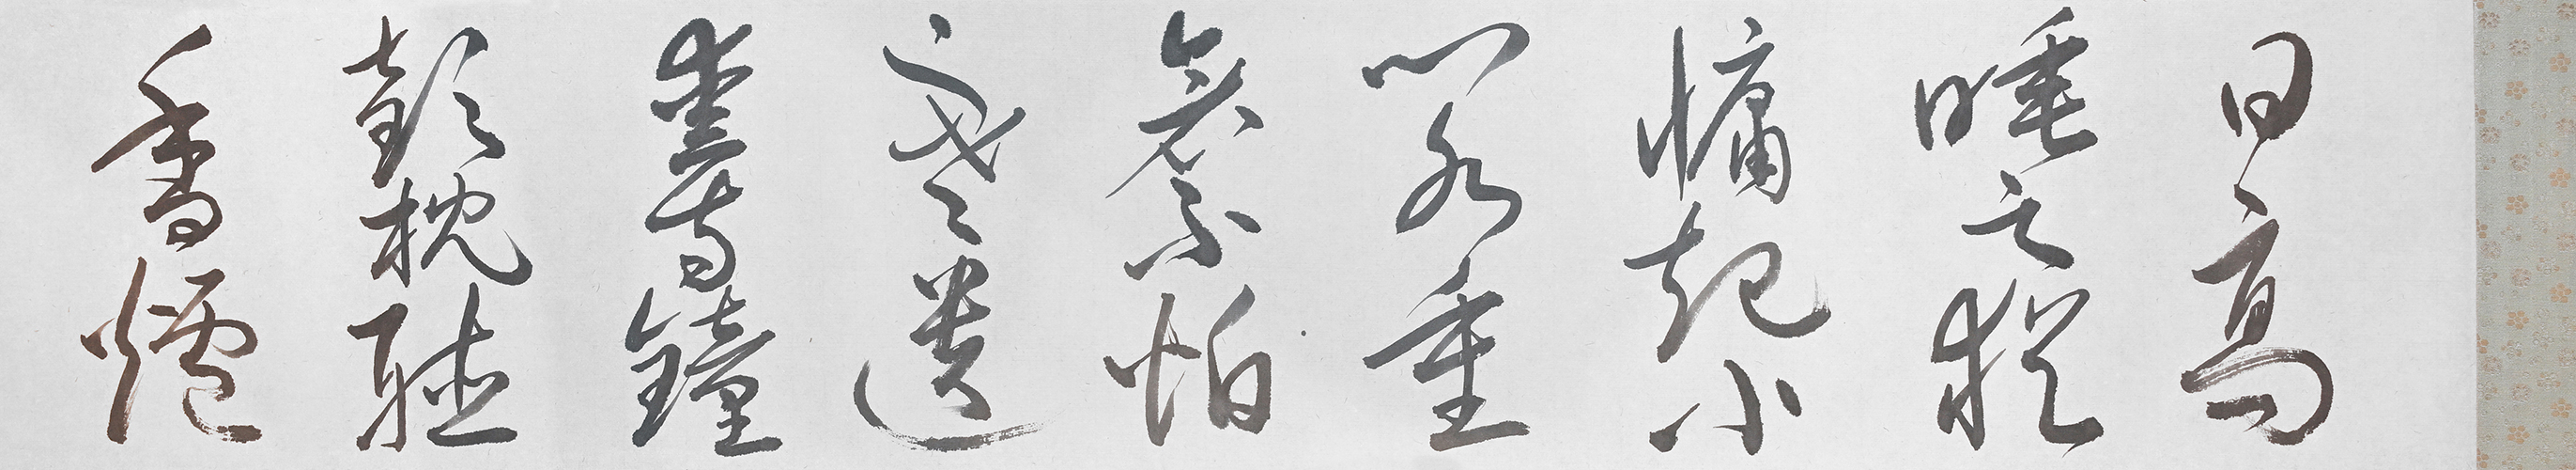 日高
睡足猶
慵起小
閣重
衾不怕
寒遺
愛寺鐘
欹枕聴
香爐